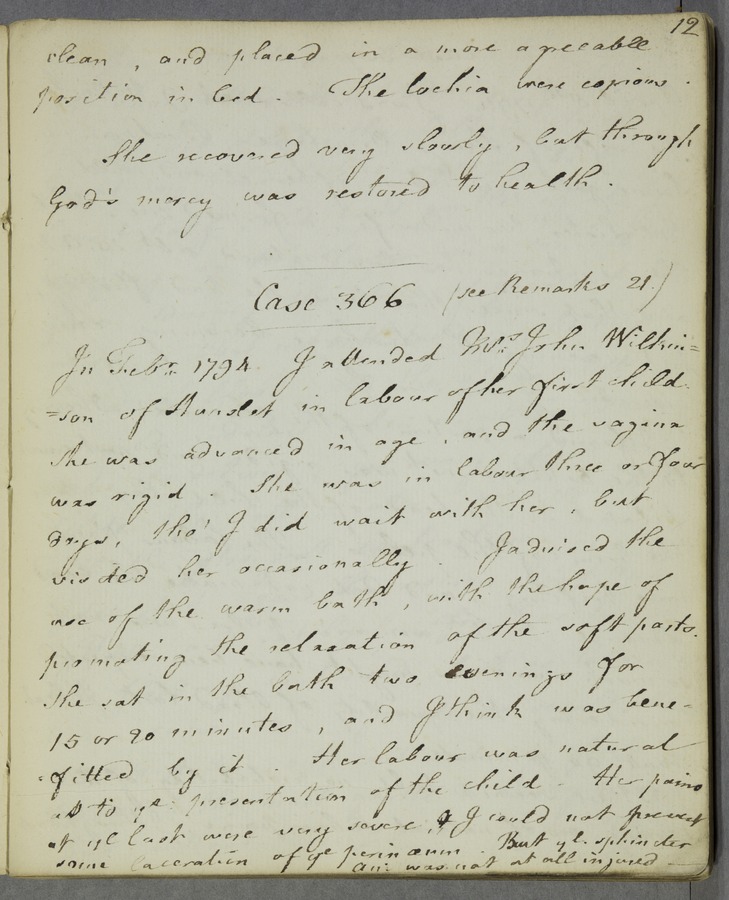 12
clean, and placed in a more agreeable
position in bed. The lochia were copious.
She recovered very slowly, but through
God's mercy was restored to health.
Case 366 (see Remarks 21.)
In Febry. 1794 I attended Mrs. John Wilkin=
=son of Hunslet in labour of her first child.
She was advanced in age, and the vagina
was rigid. She was in labour three or four
days, tho' I did wait with her, but
visited her occasionally. I advised the
use of the warm bath, with the hope of
promoting the relaxation of the soft parts.
She sat in the bath two evenings for
15 or 20 minutes, and I think was bene-
=fitted by it. Her labour was natural
as to ye. presentation of the child. Her pains
at ye last were very severe & I could not prevent
some laceration of ye perinaeum. But ye. sphincter
ani was not at all injured